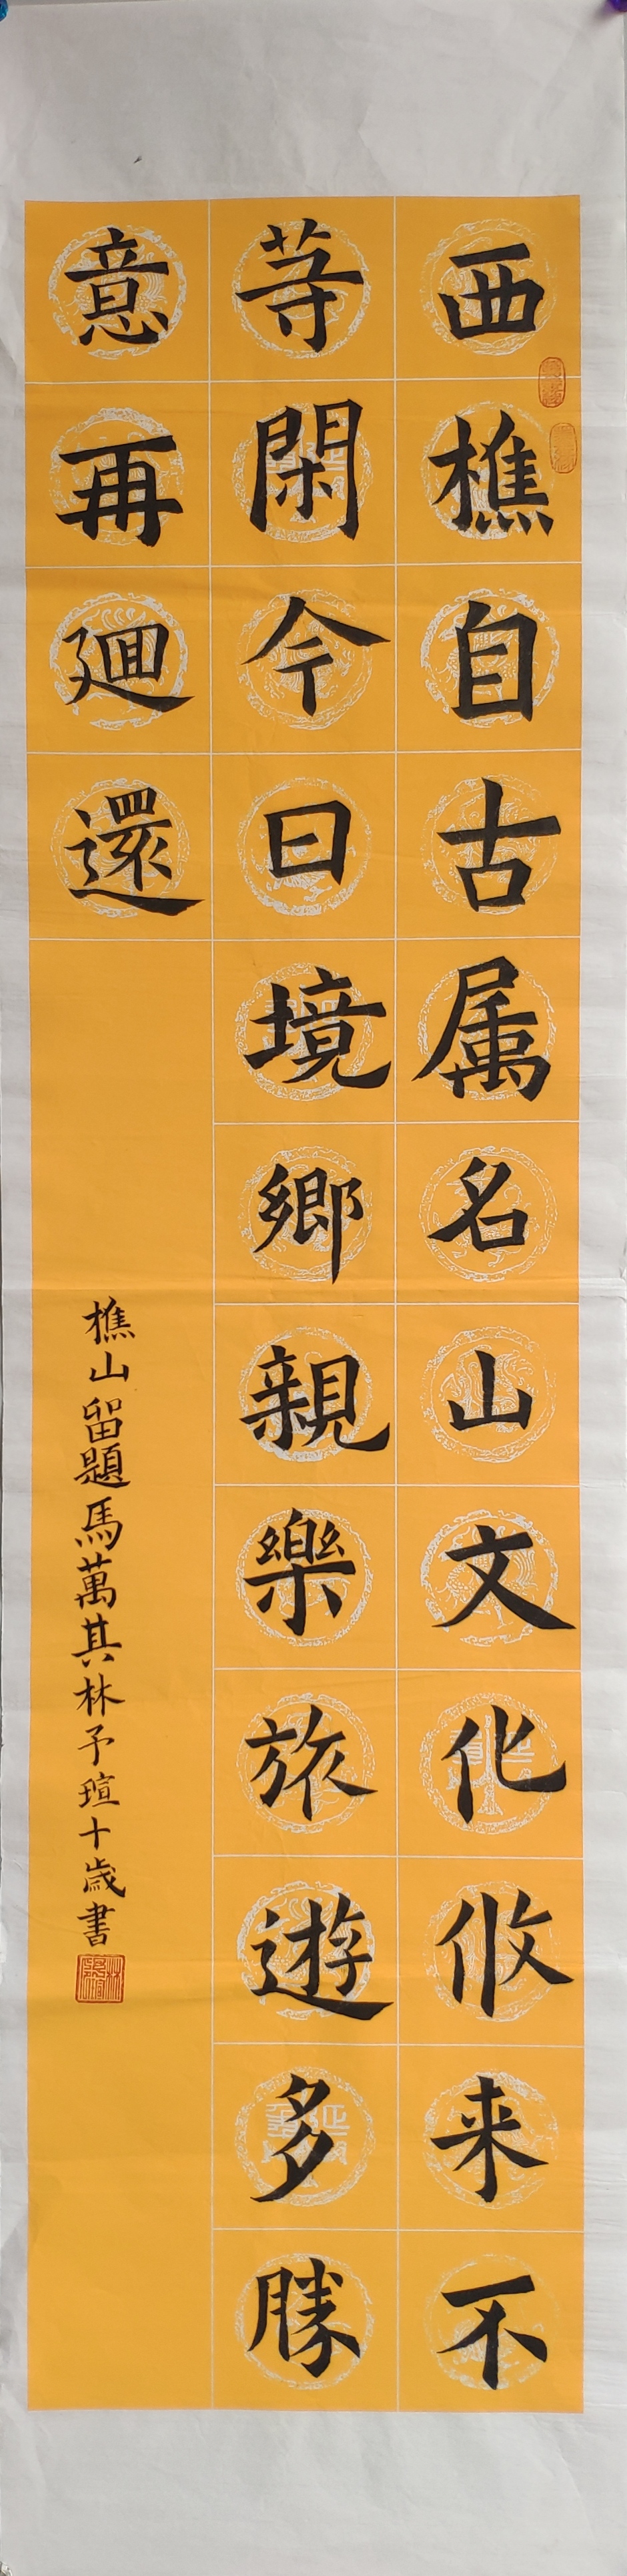 西樵自古属名山文化攸来不
等閑今日境鄉親樂旅遊多勝
意再迴還
樵山留題馬萬其林予瑄十歲書